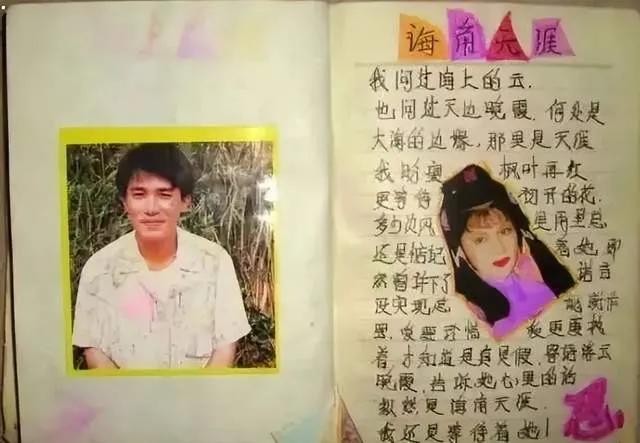 海角天涯
我问过海上的云.
也问过天边晚霞,何处是
大海的边缘,那里是天涯
我盼望 枫叶再红
更等待 初开的花.
多少次风 里雨里总
还是惦记 着她 即
然留下了 诺言
没实现总
里,
着,才知道是真是假,寄语浮云
晚霞,告诉她心里的话
纵然是海角天涯.
我还是要等着她!